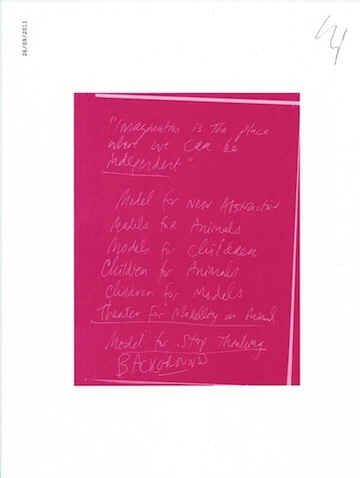 26/09/2011
"imagination is the place
where we can be
independent"
Model for New Abstraction
Models for Animals
Models for Children
Children for Animals
Children for Models
Theater for Modelling an Animal
Model for Stop Thinking
BACKGROUND